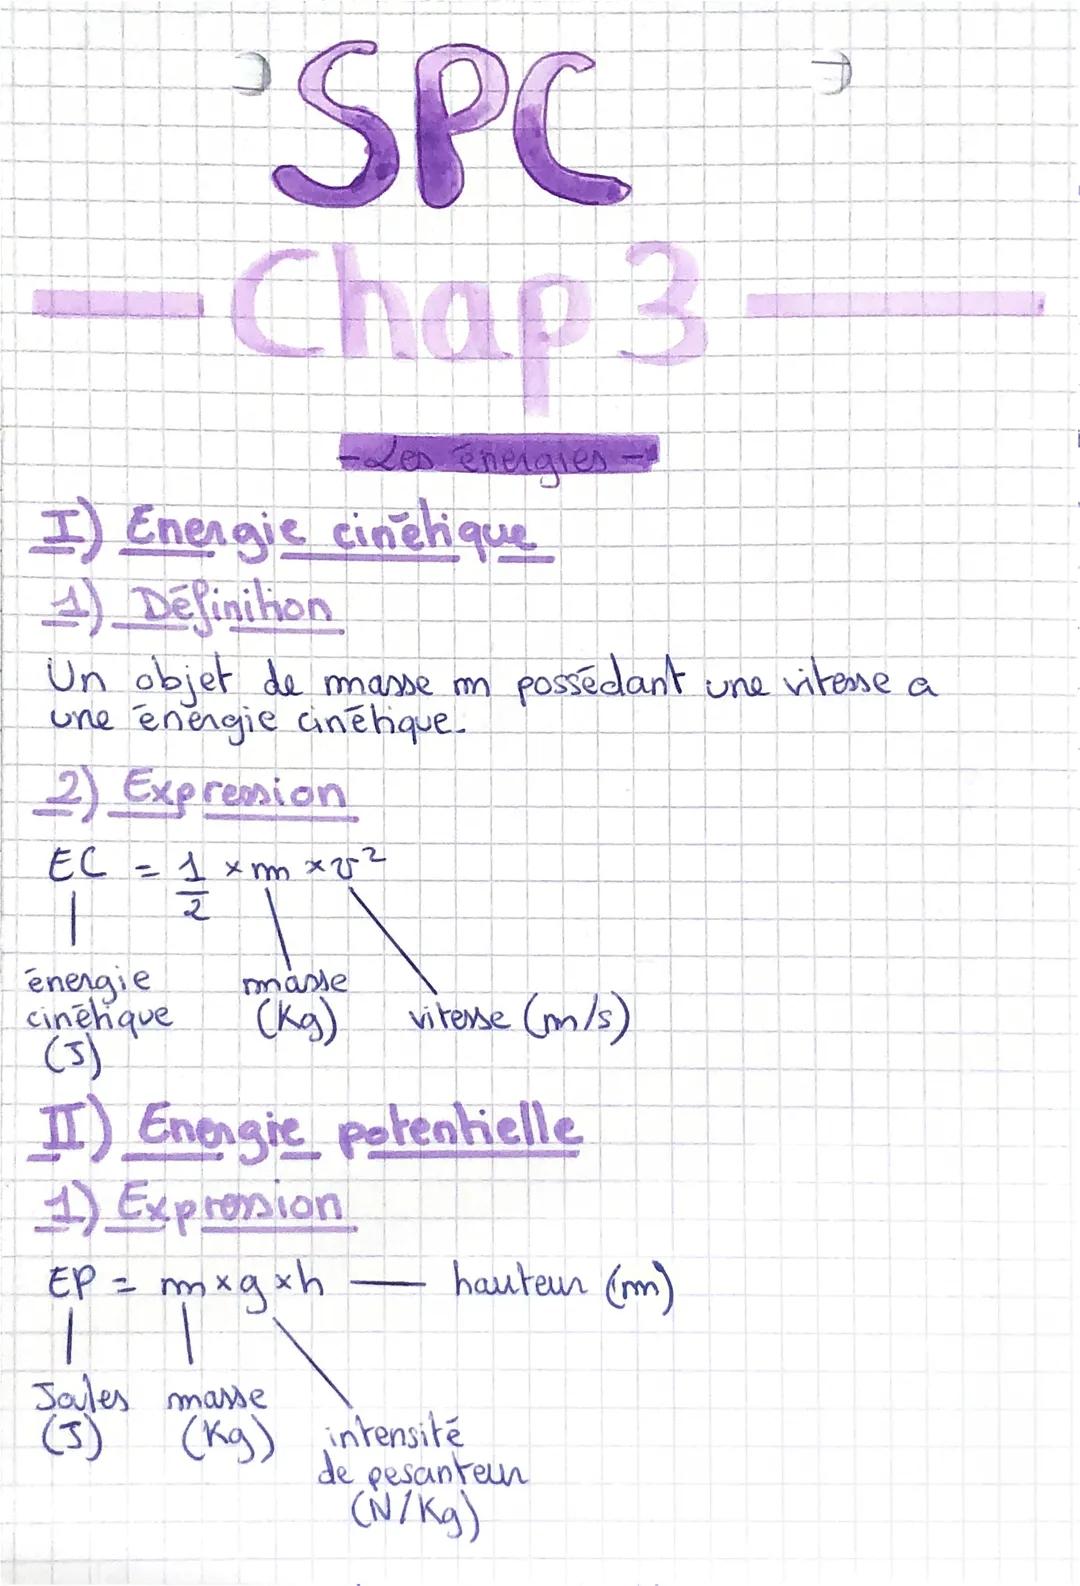 SPC
Chap 3
-Les énergies-
I) Energie cinétique
1) Définition
Un objet de masse m possédant une vitesse a
une énergie cinétique.
2) Expression
EC = 1/2 × m × v²
énergie cinétique (J)
masse (Kg)
vitesse (m/s)
II) Energie potentielle
1) Expression
EP = m × g × h — hauteur (m)
Joules (J)
masse (Kg)
intensité de pesanteur (N/Kg)